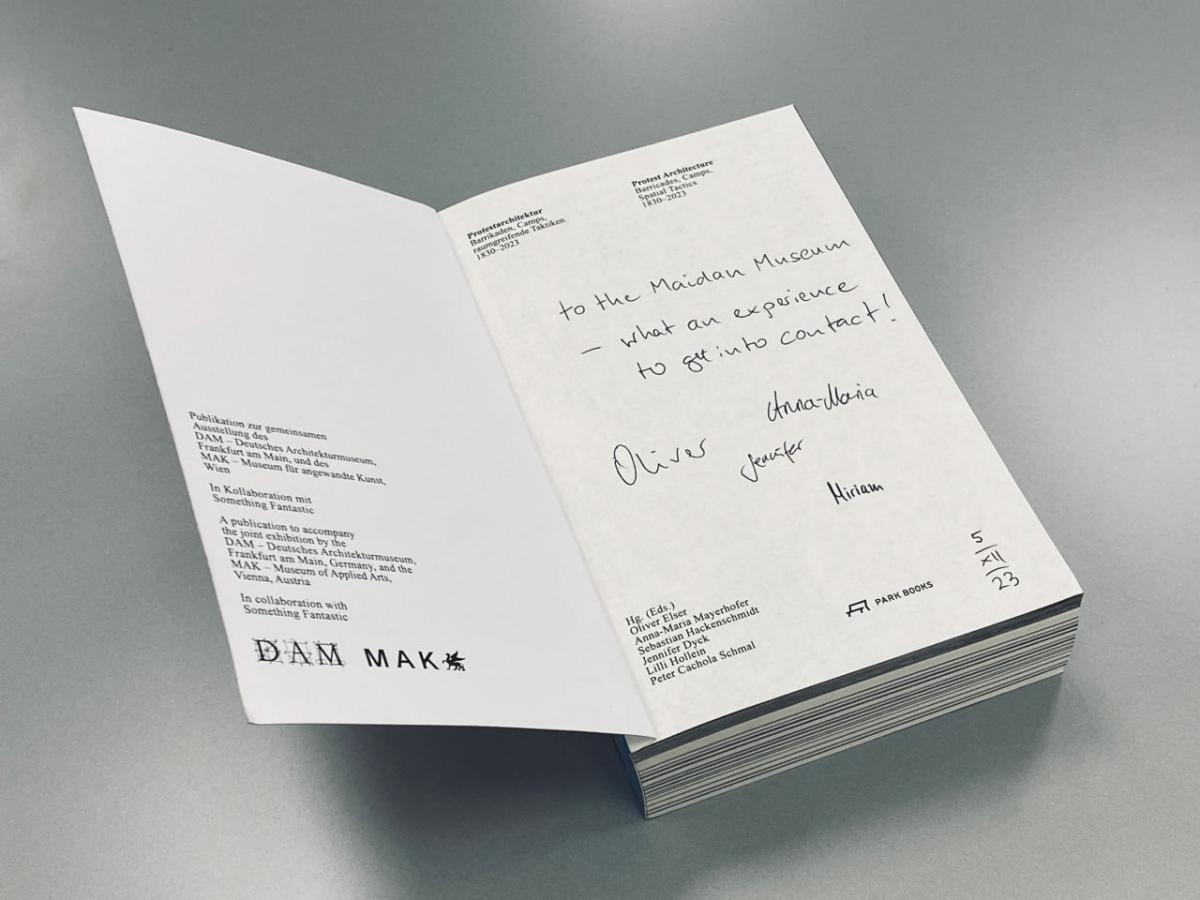 Publikation zur gemeinsamen
Ausstellung des
DAM – Deutsches Architekturmuseum,
Frankfurt am Main, und des
MAK – Museum für angewandte Kunst,
Wien
In Kollaboration mit
Something Fantastic
A publication to accompany
the joint exhibition by the
DAM – Deutsches Architekturmuseum,
Frankfurt am Main, Germany, and the
MAK – Museum of Applied Arts,
Vienna, Austria
In collaboration with
Something Fantastic
DAM MAK
Protestarchitektur
Barrikaden, Camps,
raumgreifende Taktiken
1830–2023
Protest Architecture
Barricades, Camps,
Spatial Tactics
1830–2023
to the Maidan Museum
– what an experience
to get into contact!
Anna-Maria
Oliver
Jennifer
Miriam
5
XII
23
Hg. (Eds.)
Oliver Elser
Anna-Maria Mayerhofer
Sebastian Hackenschmidt
Jennifer Dyck
Lilli Hollein
Peter Cachola Schmal
PARK BOOKS